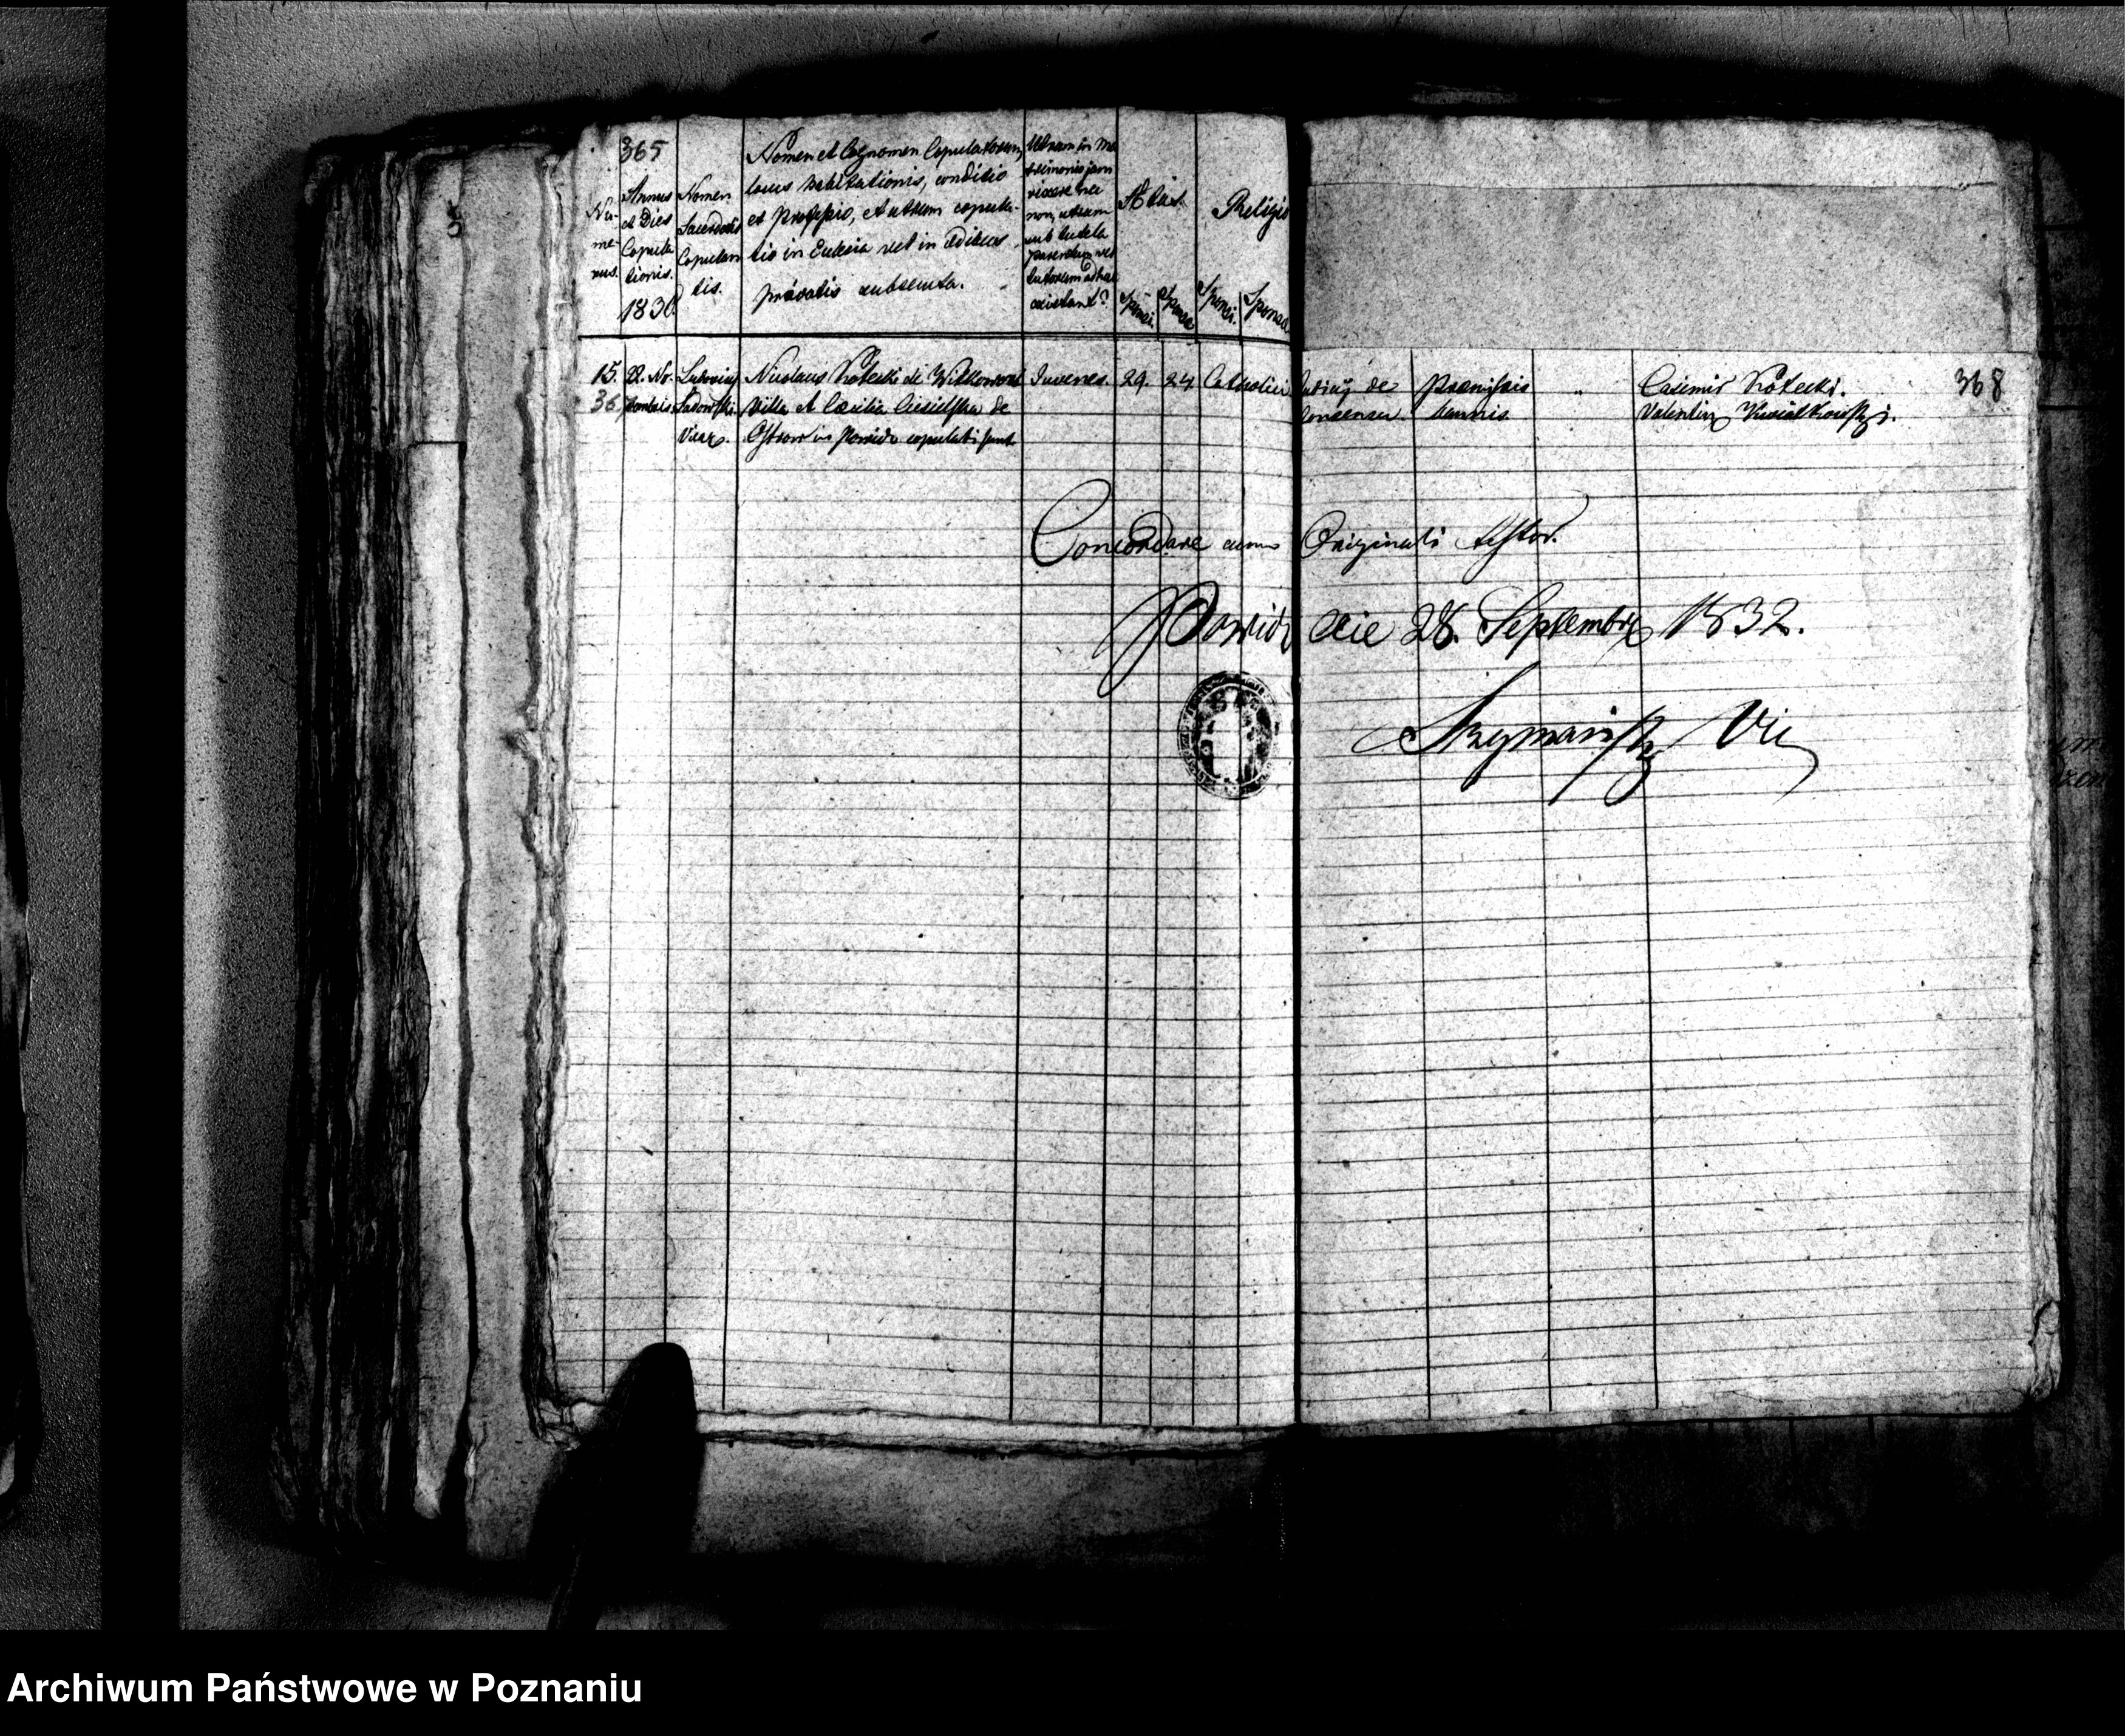 365
Nu-
me-
rus.
Annus
et Dies
Copula
tionis.
1830
Nomen
Sacerdotis
Copulan
tis.
Nomen et Cognomen Copulatorum,
locus habitationis, conditio
et professio, et utrum copula-
tio in Ecclesia vel in aedibus
privatis subsecuta.
Utrum in Ma
trimonio jam
vixere nec
non, utrum
sub tutela
parentum vel
tutorum adhuc
existant?
Aetas
Sponsi.
Sponsae
Religio
Sponsi.
Sponsae.
15.
36
22. No-
vembris
Ludovicus
Sadowski
Vicar.
Nicolaus Kotecki de Witkowo
Villa et Caecilia Ciesielska de
Ostrowo in Powidz copulati sunt
Juvenes.
29.
24
Catholica
Judicii de
Consensu.
Praemissis
bannis.
"
Casimir Kotecki.
Valentin Kwiatkowski.
368
Concordare cum Originali testor.
Powidz die 28. Septembris 1832.
Szymański Vic
Archiwum Państwowe w Poznaniu